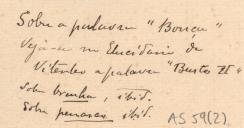 Sobre a palavra "Bouça"
Veja-se no Elucidario de
Viterbo a palavra "Busto II"
Sobre branha, ibid.
Sobre ibid.
AS 59(2)